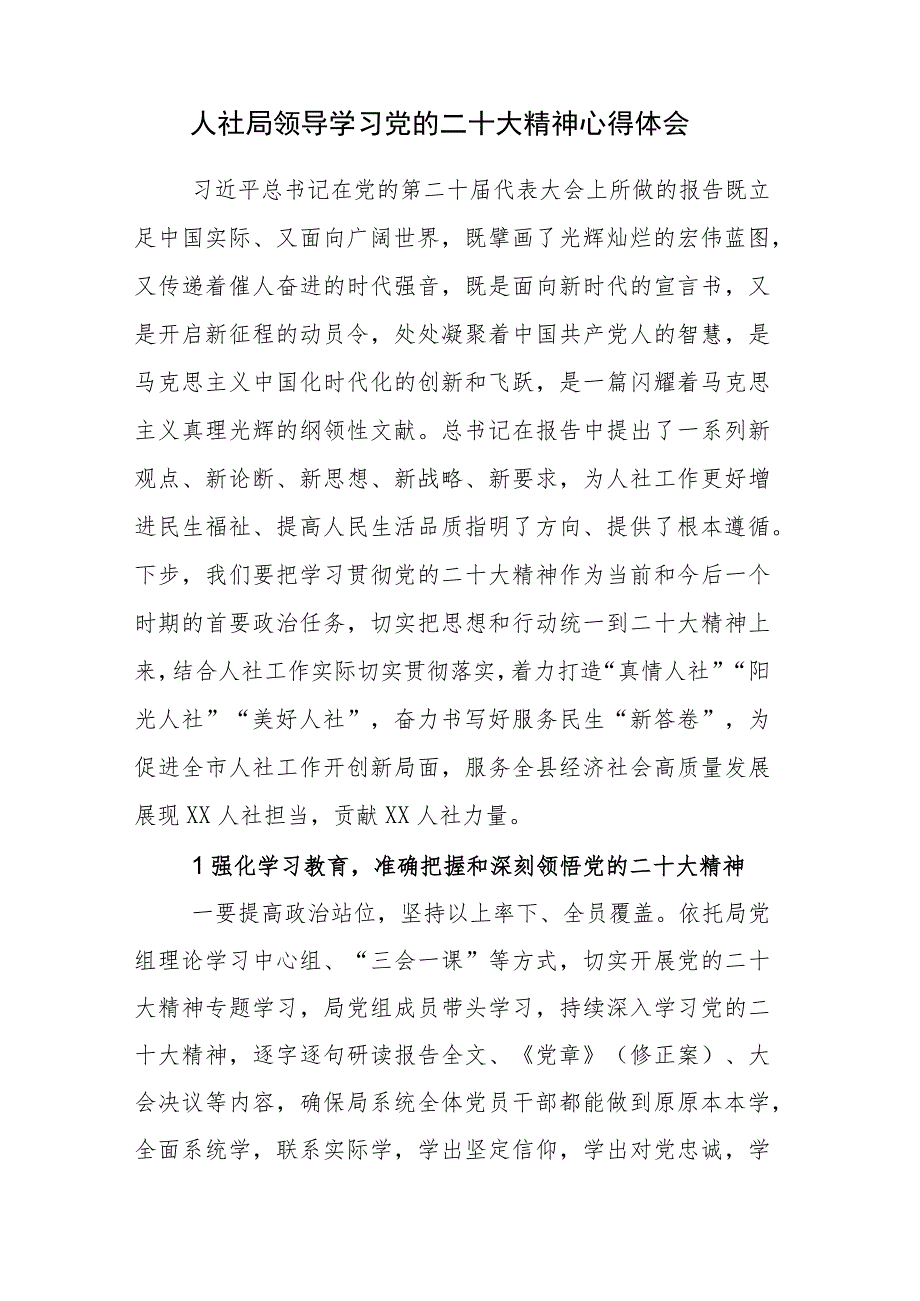 人社局领导学习党的二十大精神心得体会
习近平总书记在党的第二十届代表大会上所做的报告既立
足中国实际、又面向广阔世界，既擘画了光辉灿烂的宏伟蓝图，
又传递着催人奋进的时代强音，既是面向新时代的宣言书，又
是开启新征程的动员令，处处凝聚着中国共产党人的智慧，是
马克思主义中国化时代化的创新和飞跃，是一篇闪耀着马克思
主义真理光辉的纲领性文献。总书记在报告中提出了一系列新
观点、新论断、新思想、新战略、新要求，为人社工作更好增
进民生福祉、提高人民生活品质指明了方向、提供了根本遵循。
下步，我们要把学习贯彻党的二十大精神作为当前和今后一个
时期的首要政治任务，切实把思想和行动统一到二十大精神上
来，结合人社工作实际切实贯彻落实，着力打造“真情人社”“阳
光人社”“美好人社”，奋力书写好服务民生“新答卷”，为
促进全市人社工作开创新局面，服务全县经济社会高质量发展
展现XX人社担当，贡献XX人社力量。
1强化学习教育，准确把握和深刻领悟党的二十大精神
一要提高政治站位，坚持以上率下、全员覆盖。依托局党
组理论学习中心组、“三会一课”等方式，切实开展党的二十
大精神专题学习，局党组成员带头学习，持续深入学习党的二
十大精神，逐字逐句研读报告全文、《党章》（修正案）、大
会决议等内容，确保局系统全体党员干部都能做到原原本本学，
全面系统学，联系实际学，学出坚定信仰，学出对党忠诚，学